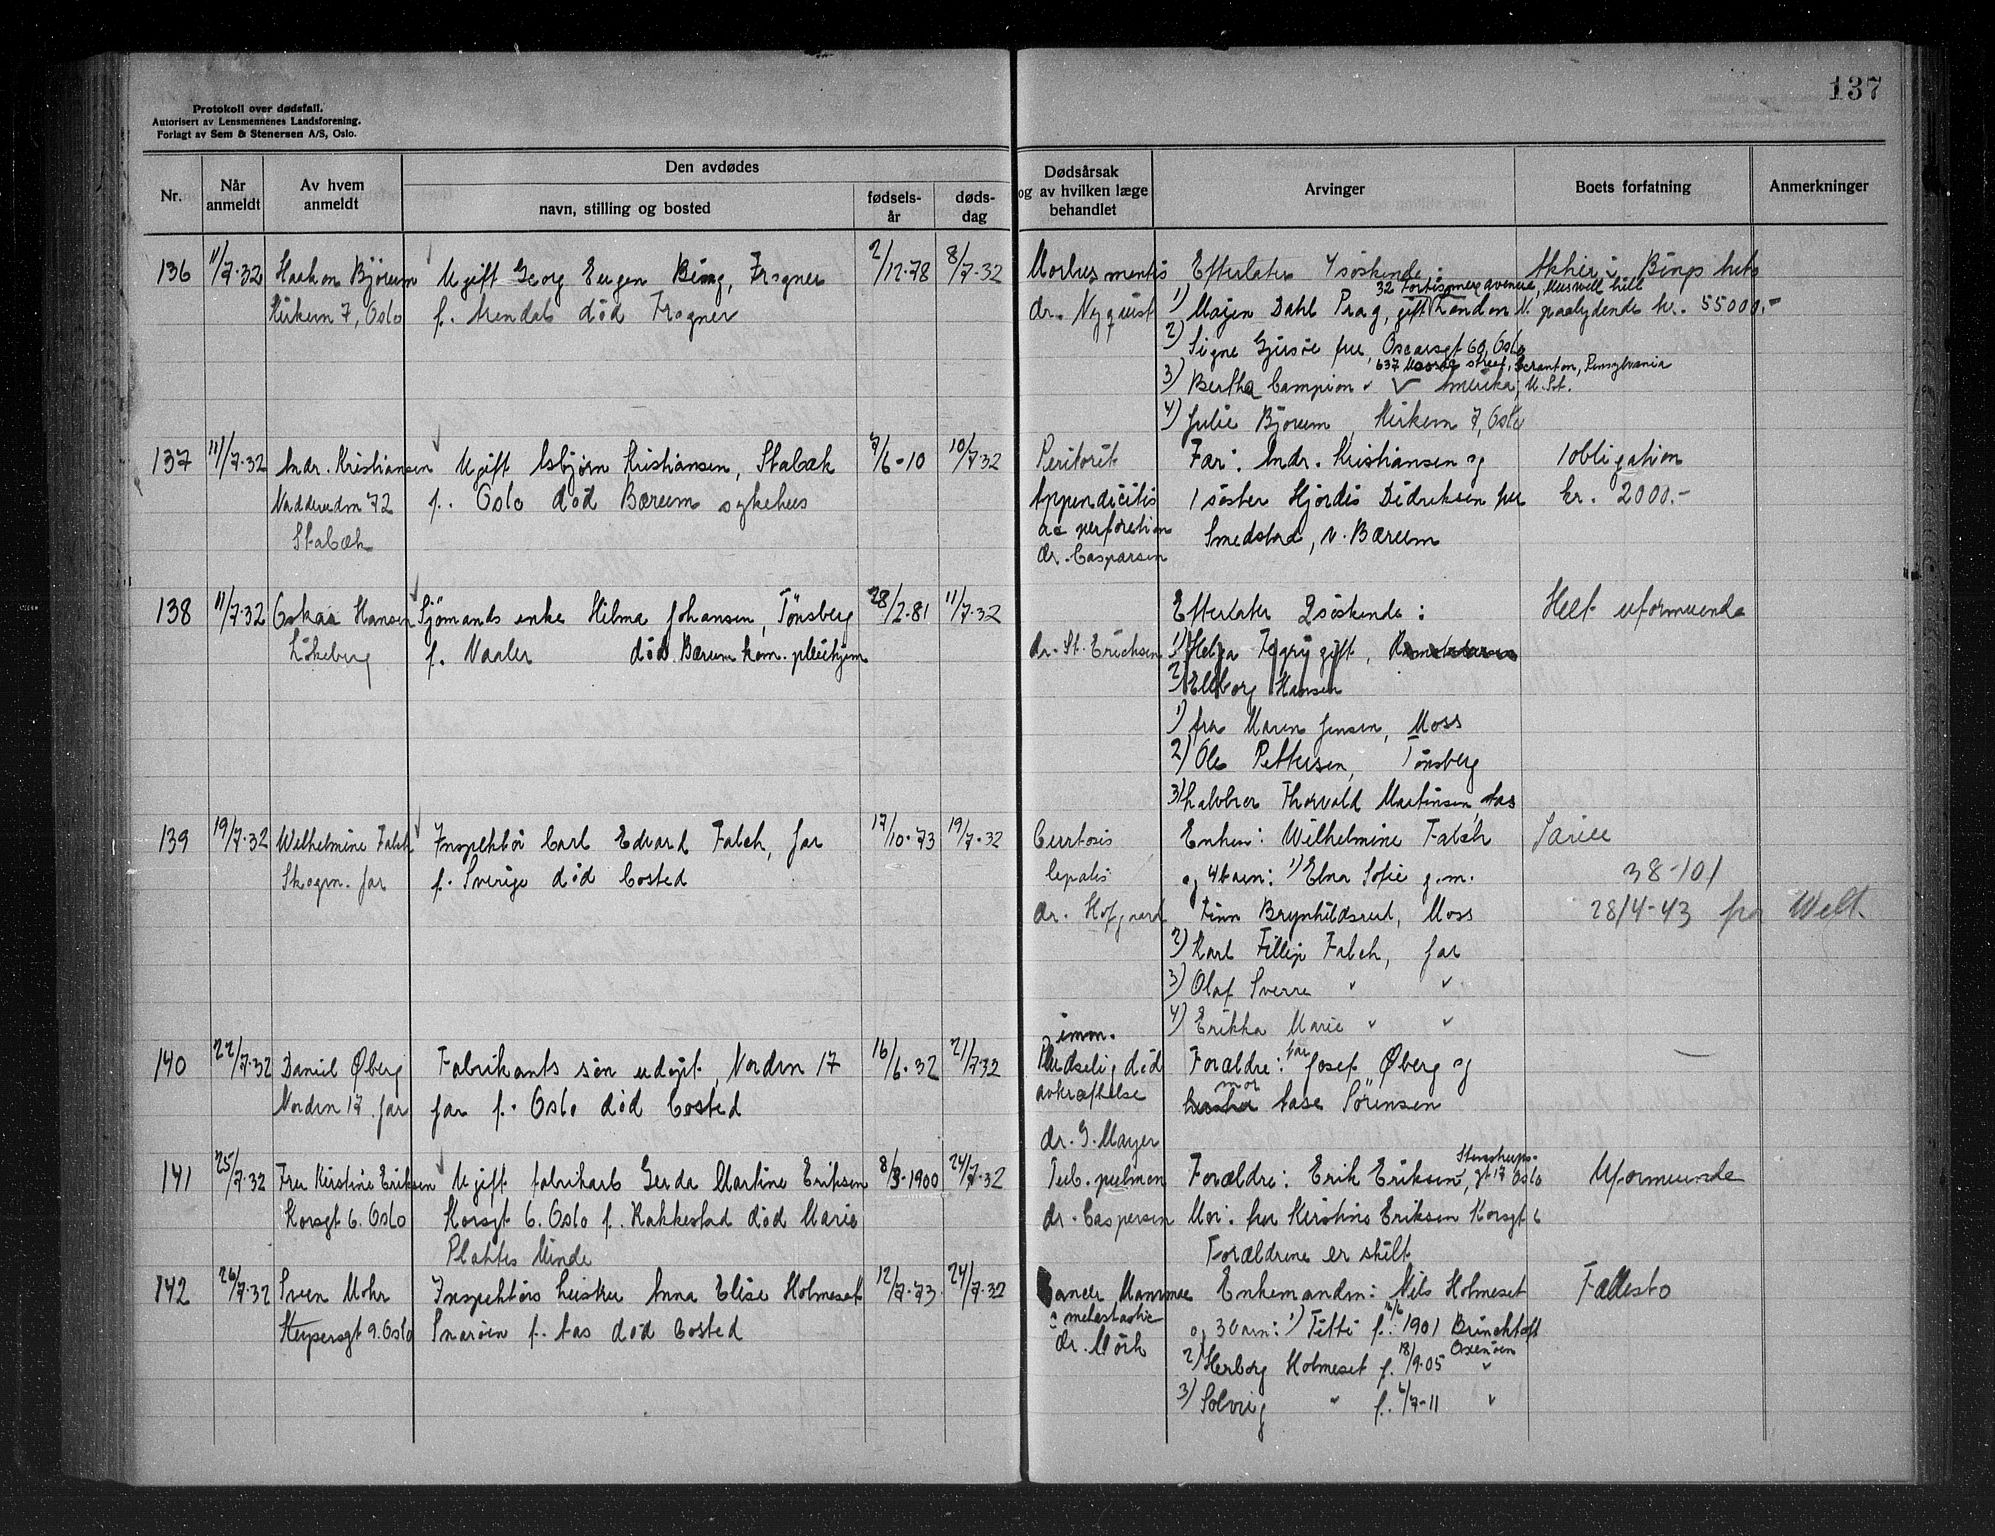 137
Protokoll over dødsfall.
Autorisert av Lensmennenes Landsforening.
Forlagt av Sem & Stenersen A/S, Oslo.
Nr.
Når anmeldt
Av hvem anmeldt
Den avdødes
navn, stilling og bosted
fødsels-år
døds-dag
Dødsårsak og av hvilken læge behandlet
Arvinger
Boets forfatning
Anmerkninger
136 11/7-32 Haakon Bjørum Ugift Georg Eugen Bing, Frogner 2/12-78 8/7-32 Morbus mentis Efterlater 4 søskende: Aktier i Bings
32 Fortismere avenue, Muswell hill
Kirkevn 7, Oslo f. Arendal død Frogner dr. Nyquist 1) Majen Dahl Prag, gift London N. paalydende kr. 55000.-
2) Signe fru, Oscarsgt 60, Oslo
637 street, Scranton, Pensylvania
3) Bertha Campion " Amerika, U. St.
4) Julie Bjørum, Kirkevn 7, Oslo
137 11/7-32 Andr. Kristiansen Ugift Asbjørn Kristiansen, Stabæk 7/6-10 10/7-32 Peritonit Far: Andr. Kristiansen og 1 obligation
72 f. Oslo død Bærum sykehus Appendicitis 1 søster Hjordis Didriksen fru kr. 2000.-
Stabæk ac perforation Smedstad, V. Bærum
dr. Caspersen
138 11/7-32 Oskar Hansen Sjømands enke Hilma Johansen, Tønsberg 28/2-81 11/7-32 Efterlater 2 søskende: Helt uformuende
Løkeberg f. Vaaler død Bærum kom. pleiehjem dr. St. Erichsen 1) Helga gift,
2) Hansen
1) fru Maren Jensen, Moss
2) Ole Pettersen, Tønsberg
3) halvbror Thorvald Martinsen, Aas
139 19/7-32 Wilhelmine Falch Inspektør Carl Edvard Falch, Jar 17/10-73 19/7-32 Enken: Wilhelmine Falch
Skogvn. Jar f. Sverige død bosted og 4 barn: 1) Elna Sofie g.m. 38-101
dr. Hofgaard Finn Brynhildsrud, Moss 28/4-43 fra Welt.
2) Karl Fillip Falch, Jar
3) Olaf Sverre " "
4) Erikka Marie " "
140 22/7-32 Daniel Øberg Fabrikants søn udøpt, Nordvn 17 16/6-32 21/7-32 Pludselig død Forældre: far Josef Øberg og —
Nordvn 17. Jar Jar f. Oslo død bosted avkræftelse mor Aase Sørensen
dr. G. Mayer
141 25/7-32 Fru Kirstine Eriksen Ugift fabrikarb Gerda Martine Eriksen 8/3-1900 24/7-32 Tub. pulmon Forældre: Erik Eriksen, Stenstrups-gt 17 Oslo Uformuende
Korsgt 6. Oslo Korsgt 6. Oslo f. Rakkestad død Marie dr. Caspersen Mor: fru Kirstine Eriksen Korsgt 6
Plahtes Minde Forældrene er skilt
142 26/7-32 Sven Mohr Inspektørs hustru Anna Elise Holmeset 12/7-73 24/7-32 Cancer Mammae Enkemanden: Nils Holmeset Fællesbo
9. Oslo Snarøen f. Aas død bosted c metastastic og 3 barn: 1) Titti f. 16/6 1901
dr. Mörk 2) Herborg Holmeset f. 18/9-05 "
3) Solveig " f. 6/7-11 "